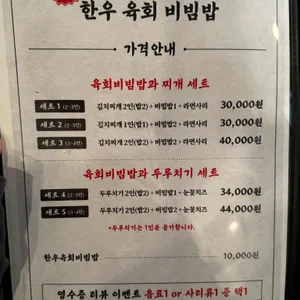 한우 육회 비빔밥
가격안내
육회비빔밥과 찌개 세트
세트 1 (2-3인) 김치찌개2인(밥2)+비빔밥1+라면사리 30,000원
세트 2 (2-3인) 김치찌개1인(밥1)+비빔밥2+라면사리 30,000원
세트 3 (3-4인) 김치찌개2인(밥2)+비빔밥2+라면사리 40,000원
육회비빔밥과 두루치기 세트
세트 4 (2-3인) 두루치기2인(밥2)+비빔밥1+눈꽃치즈 34,000원
세트 5 (3-4인) 두루치기2인(밥2)+비빔밥2+눈꽃치즈 44,000원
*두루치기는 1인분 불가합니다.
한우육회비빔밥 10,000원
영수증 리뷰 이벤트 음료1 or 사리류1 중 택1